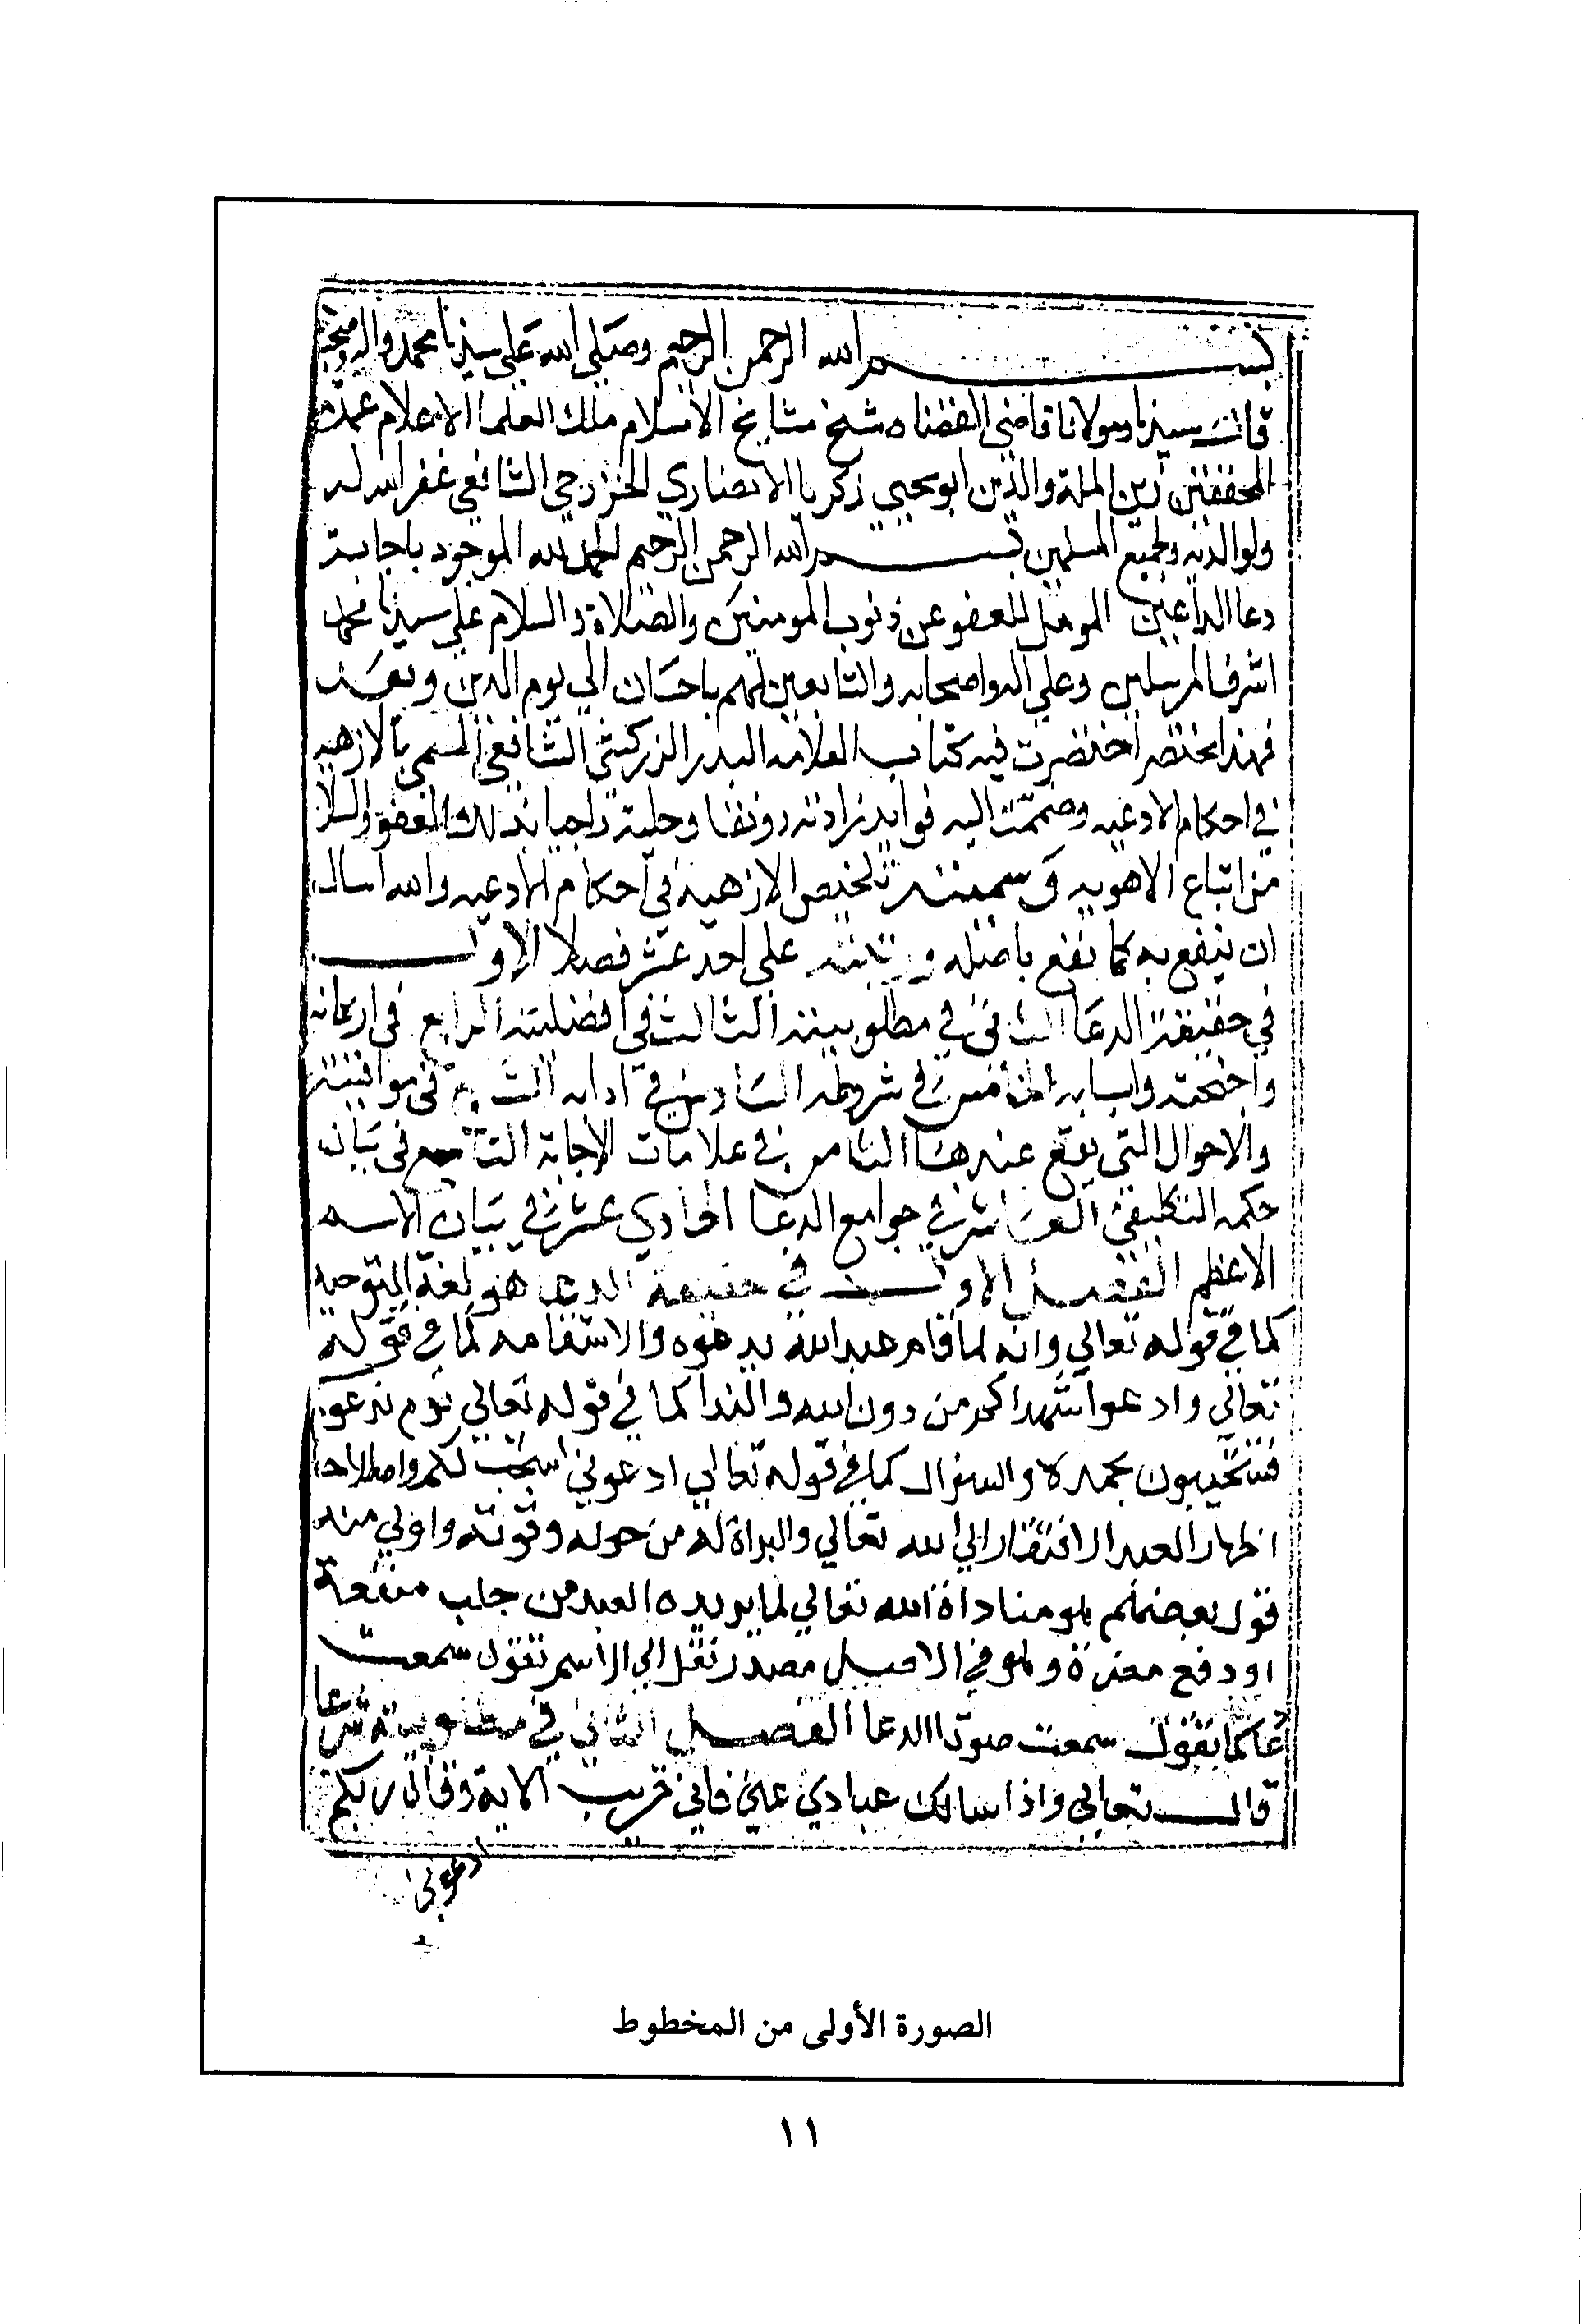 بسم الله الرحمن الرحيم وصلى الله على سيدنا محمد واله وصحبه
قال سيدنا ومولانا قاضي القضاه شيخ مشايخ الاسلام ملك العلما الاعلام عمدة
المحققين زين الملة والدين ابو يحيي زكريا الانصاري الخزرجي الشافعي غفر الله له
ولوالديه ولجميع المسلمين بسم الله الرحمن الرحيم الحمد لله الموجود باجابة
دعا الداعين المومل للعفو عن ذنوب المومنين والصلاة والسلام علي سيدنا محمد
اشرف المرسلين وعلي اله واصحابه والتابعين لهم باحسان الي يوم الدين وبعد
فهذا مختصر اختصرت فيه كتاب العلامه البدر الزركشي الشافعي المسمي بالازهيه
في احكام الادعيه وضممت اليه فوايد زادته رونقا وحلية راجيا بذلك العفو والسلا
من اتباع الاهويه وسميته تلخيص الازهية في احكام الادعيه والله اسال
ان ينفع به كما نفع باصله ورتبته على احد عشر فصلا الاول
في حقيقة الدعا الثاني في مطلوبيته الثالث في افضليته الرابع في اركانه
واجنحته واسبابه الخامس في شروطه السادس في ادابه السابع في مواقيته
والاحوال التي يقع عندها الثامن في علامات الاجابة التاسع في بيان
حكمه التكليفي العاشر في جوامع الدعا الحادي عشر في بيان الاسم
الاعظم الفصل الاول في حقيقة الدعا هو لغة التوحيد
كما في قوله تعالي وانه لما قام عبد الله يدعوه والاستقامه كما في قوله
تعالي وادعوا شهداكم من دون الله والندا كما في قوله تعالي يوم يدعوكم
فتستجيبون بحمده والسوال كما في قوله تعالي ادعوني استجب لكم واصطلاحا
اظهار العبد الافتقار الي الله تعالي والبراة له من حوله وقوته واولي منه
قول بعضهم هو مناداة الله تعالي لما يريده العبد من جلب منفعة
او دفع مضرة وهو في الاصل مصدر نقل الي الاسم تقول سمعت
دعا كما تقول سمعت صوتا الدعا الفصل الثاني في مطلوبيته شرعا
قال تعالي واذا سالك عبادي عني فاني قريب الاية وقال ربكم
ادعوني
الصورة الأولى من المخطوط
١١